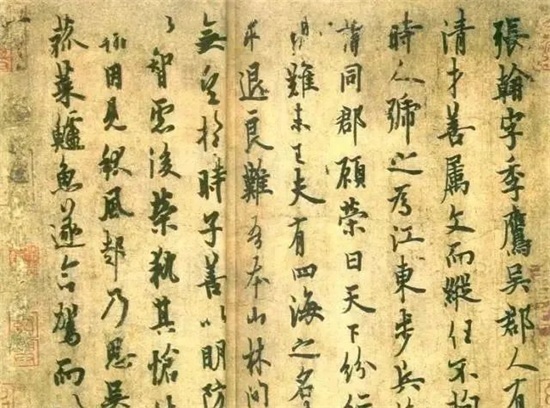 張翰字季鷹吳郡人有
清才善屬文而縱任不拘
時人號之為江東步兵
謂同郡顧榮曰天下紛
難未已夫有四海之名
求退良難吾本山林間
無望於時子善以明防
智慮後榮執其愴
翰因見秋風起乃思吳
菰菜鱸魚遂命駕而